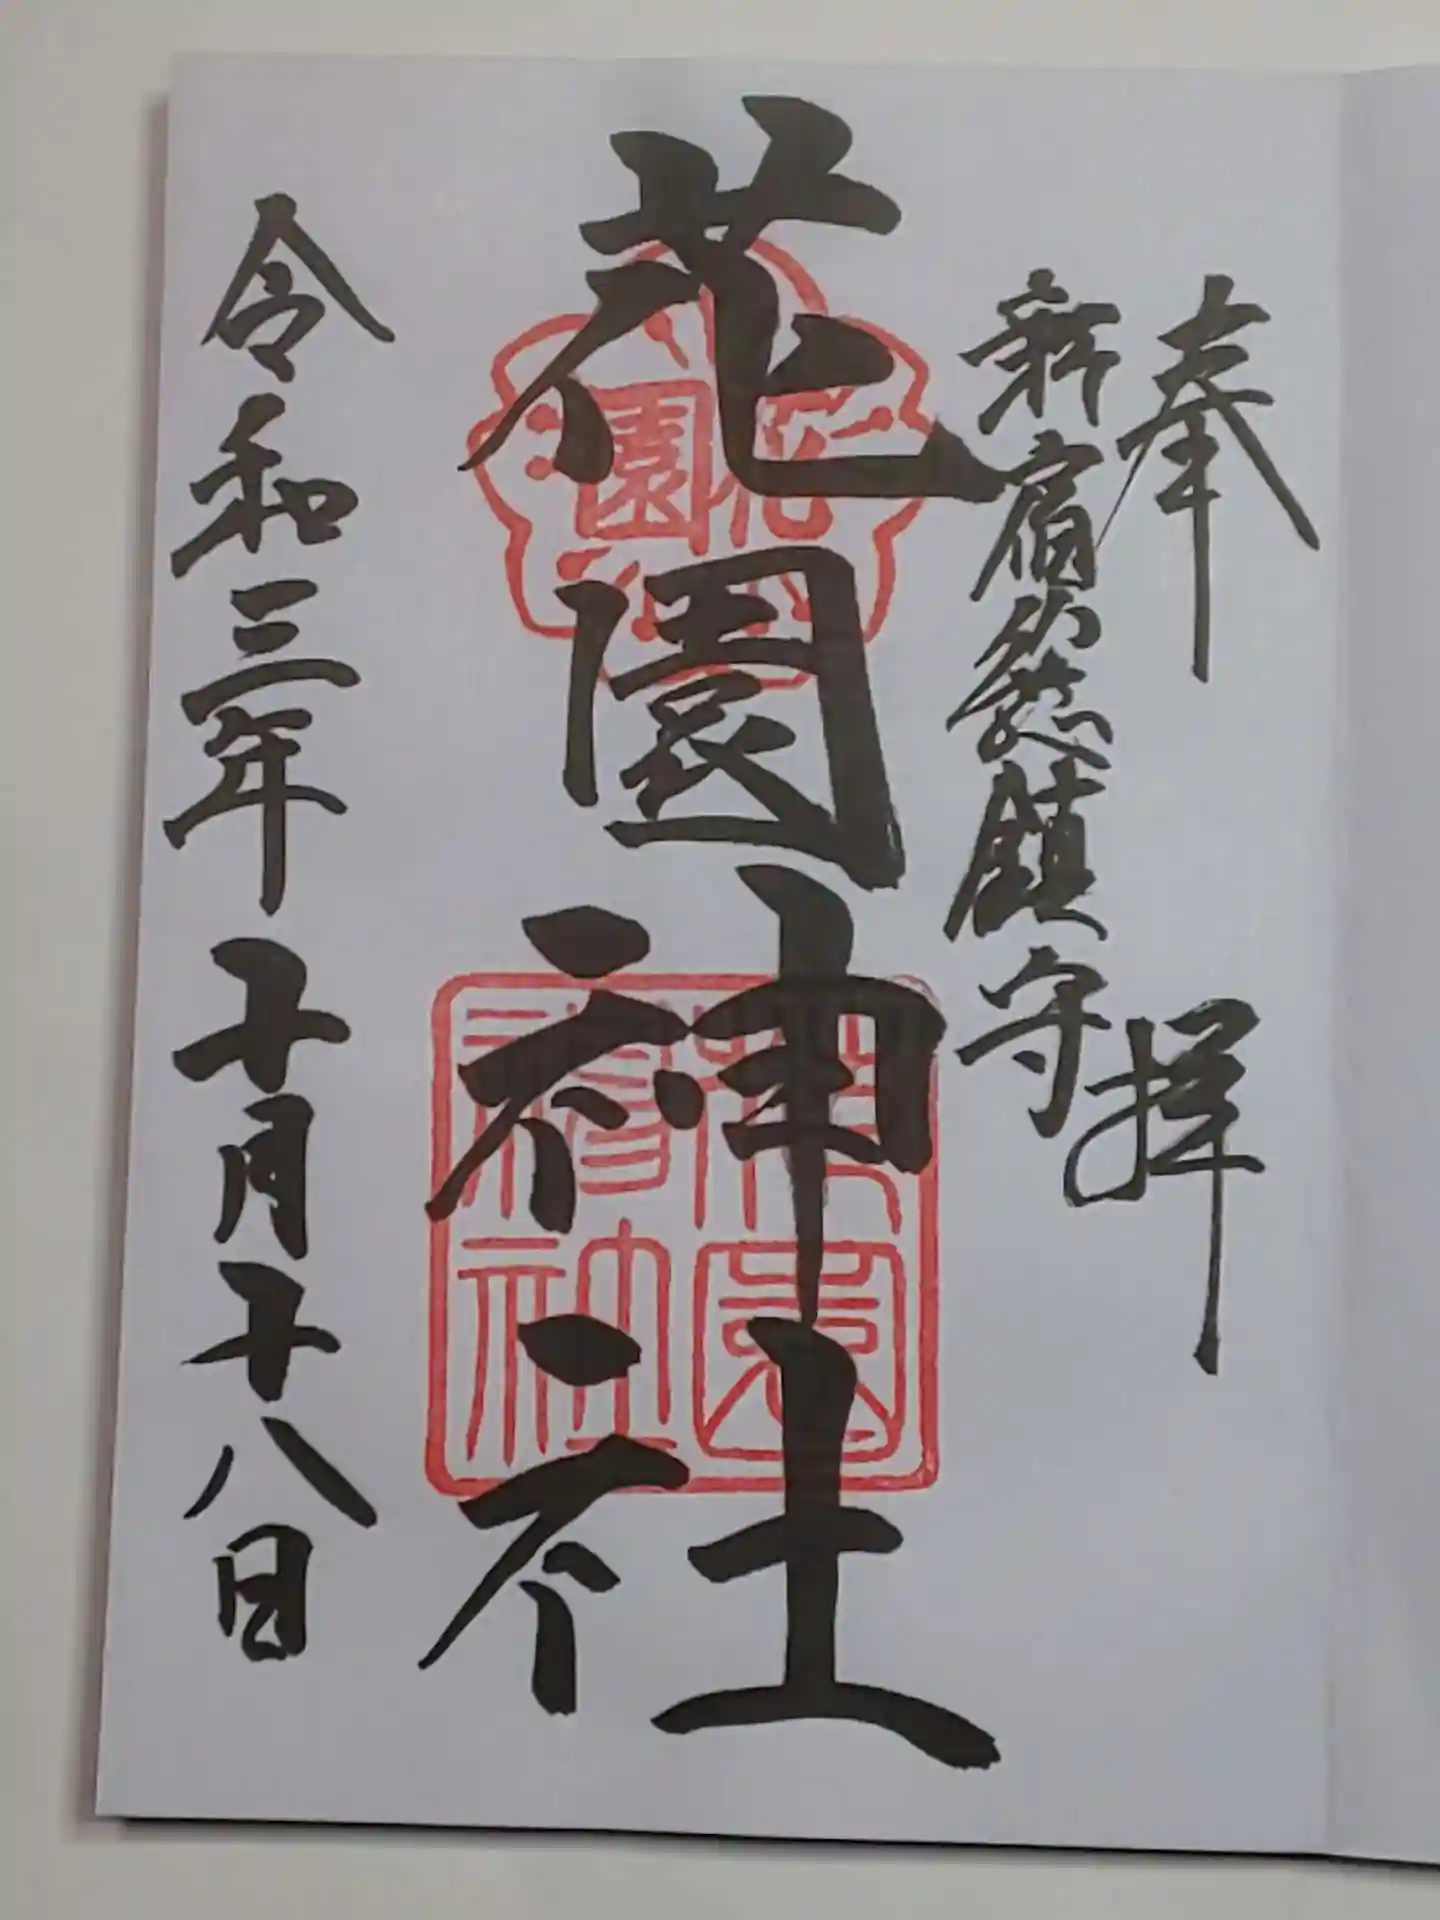 奉拝
新宿総鎮守
花園神社
花園
花園神社
令和三年十月十八日